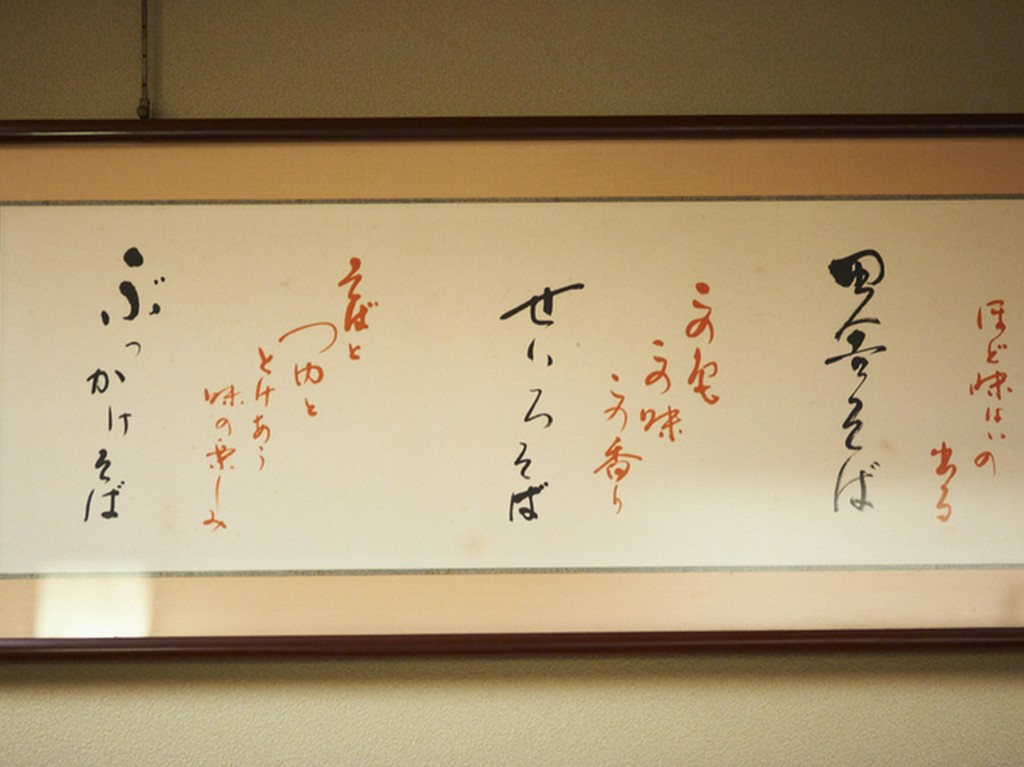 ほど味はいの
出る
田舎そば
この色
この味
この香り
せいろそば
そばと
つゆと
とけあう
味の楽しみ
ぶっかけそば